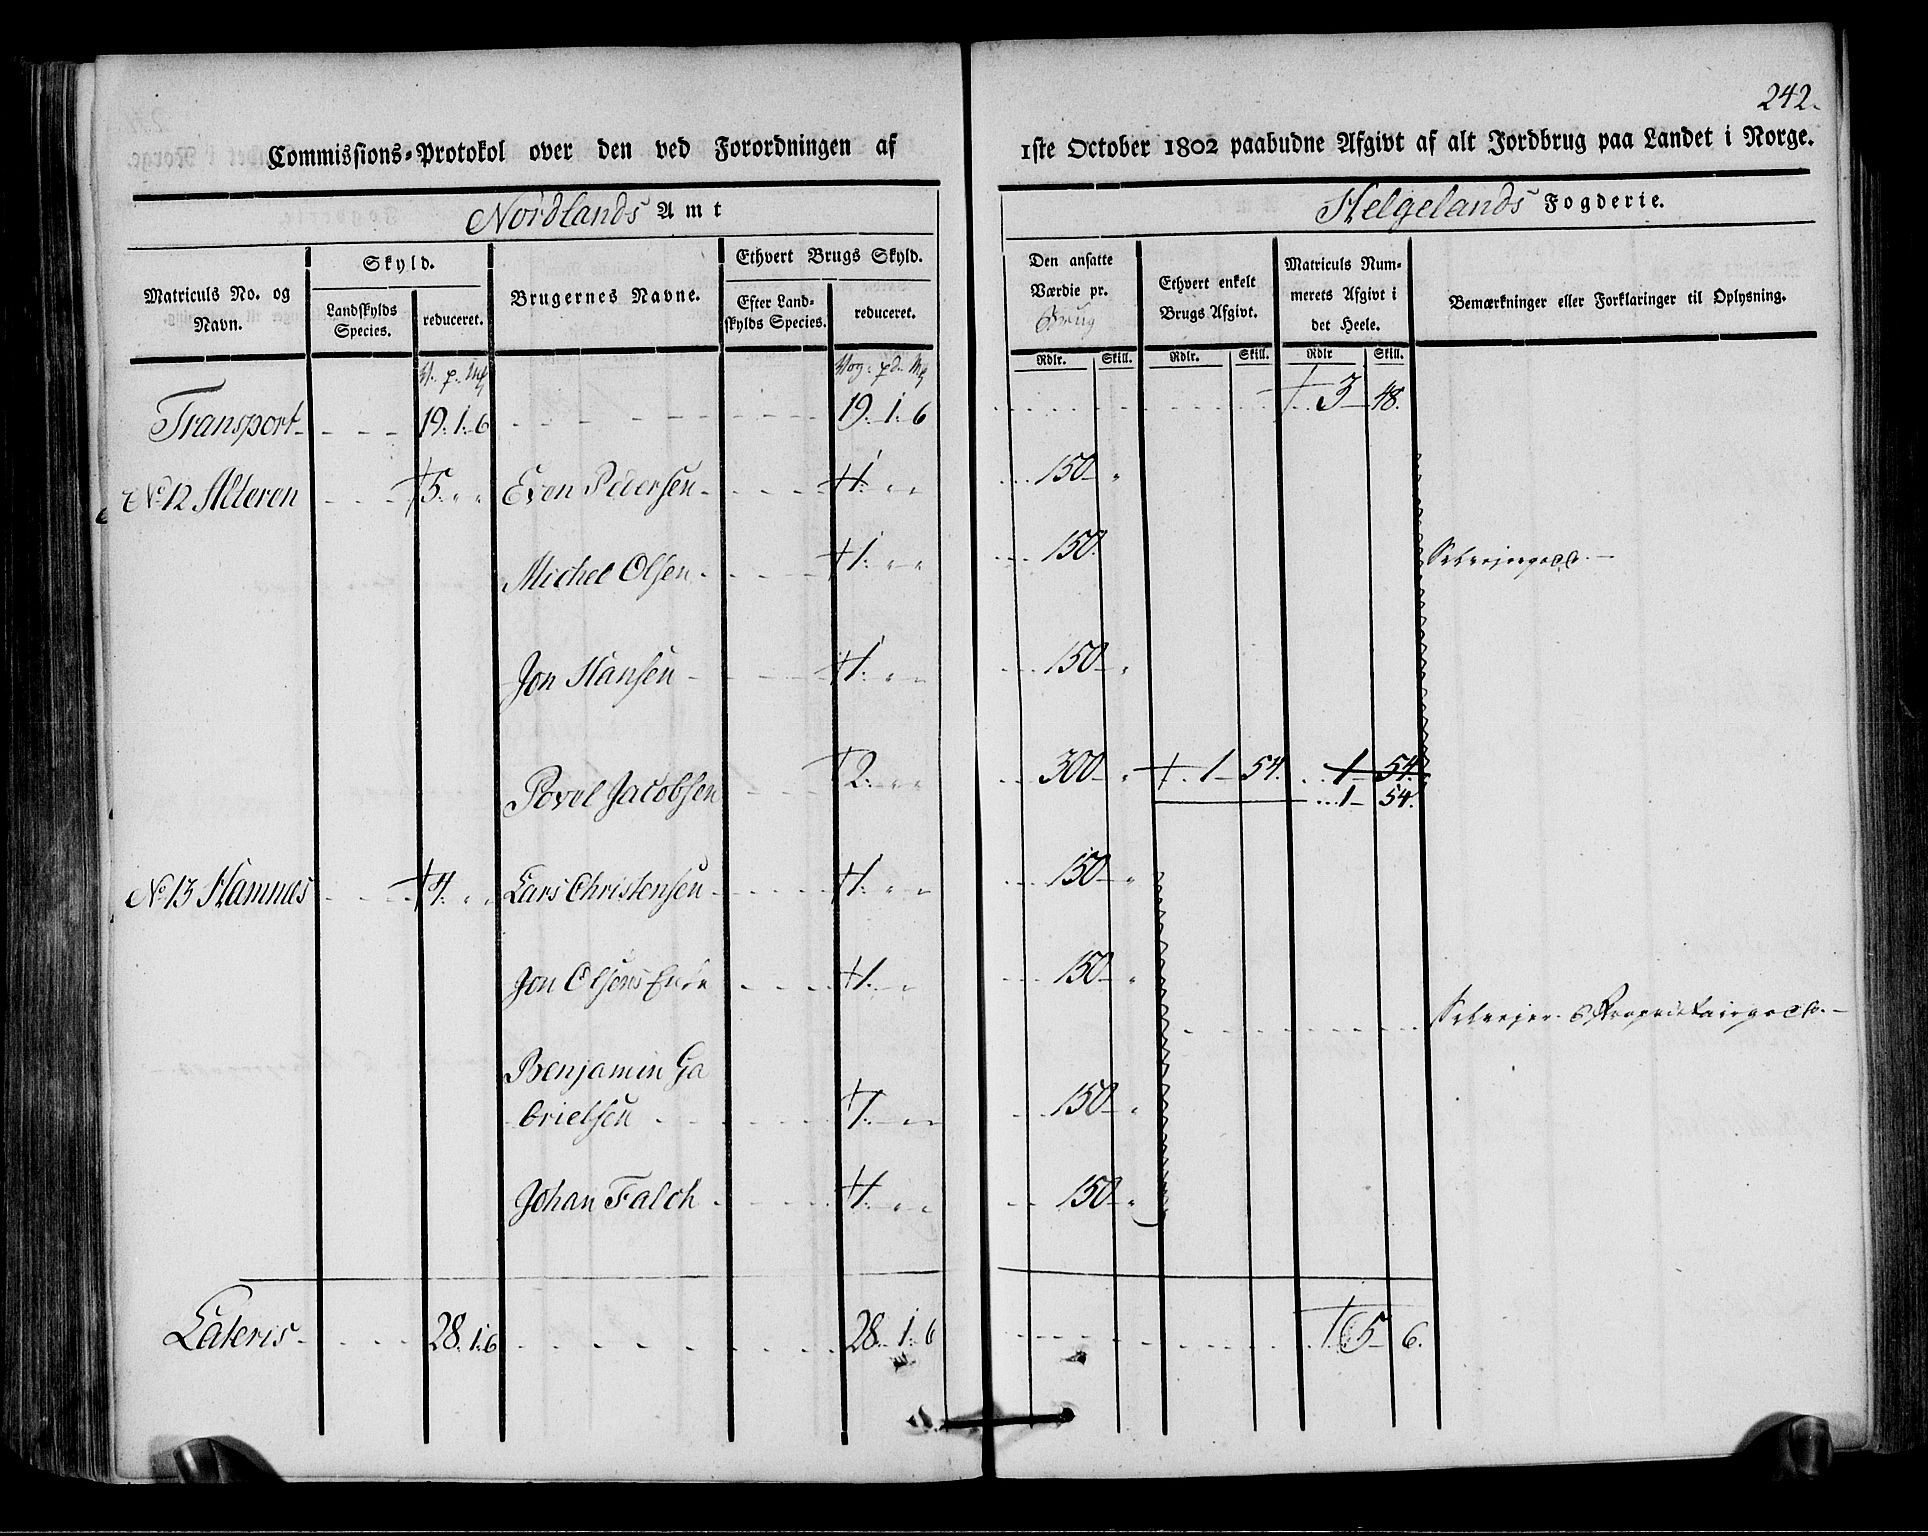 242.
Commissions-Protokol over den ved Forordningen af 1ste October 1802 paabudne Afgivt af alt Jordbrug paa Landet i Norge.
Nordlands Amt
Helgelands Fogderie.
Matriculs No. og Navn.
Skyld.
Landskylds Species.
reduceret.
Brugernes Navne.
Ethvert Brugs Skyld.
Efter Landskylds Species.
reduceret.
Den ansatte Værdie pr. Brug
Rdlr. Skill.
Ethvert enkelt Brugs Afgivt.
Rdlr. Skill.
Matriculs Nummerets Afgivt i det Heele.
Rdlr Skill.
Bemærkninger eller Forklaringer til Oplysning.
Transport 19. 1. 6 19. 1. 6 3 48.
No 12 Alteren 5. " " Even Pedersen 1. " " 150 "
Michel Olsen 1. " " 150.
Jon Hansen 1. " " 150 "
Povel Jacobsen 2. " " 300 " 1 54. 1 54.
1 54.
No 13 Hamnæs 4. " " Lars Christensen 1. " " 150 "
Jon Olsens Enke 1. " " 150 "
Benjamin Ga
brielsen 1. " " 150 "
Johan Falch 1. " " 150 "
Lateris 28. 1. 6 28. 1. 6 5 6.